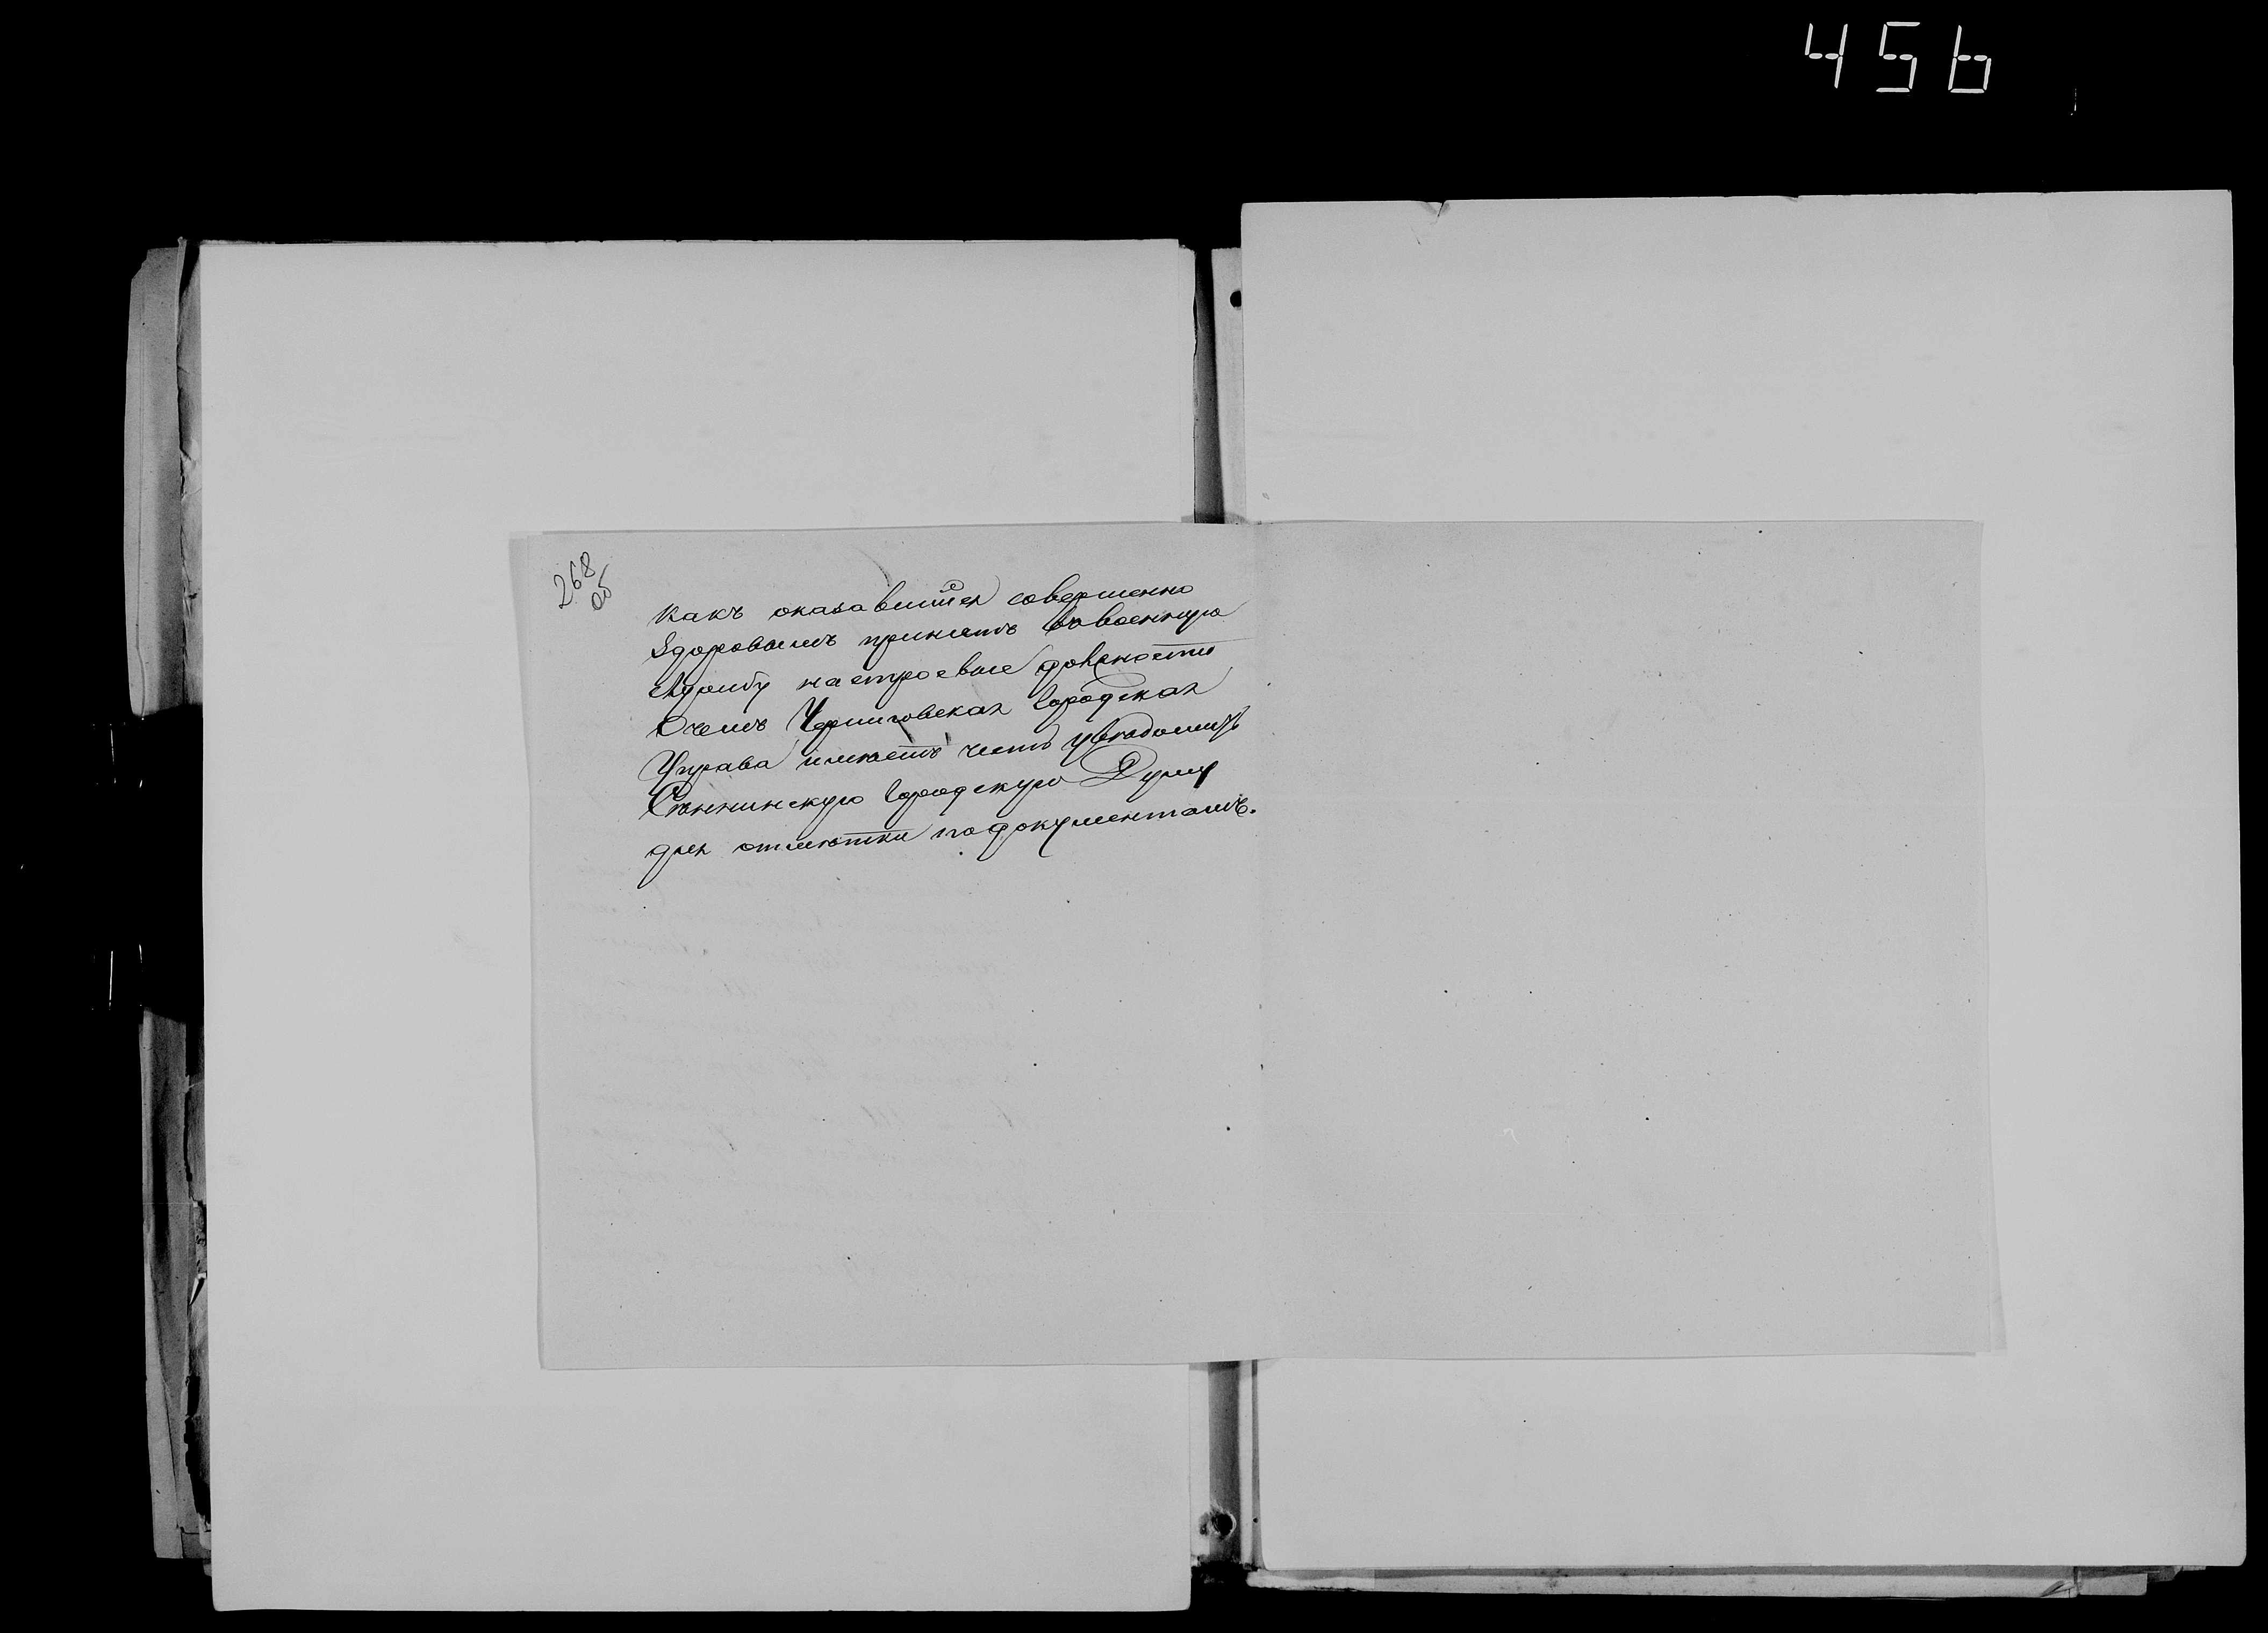 456
268
об
какъ оказавшійся совершенно
здоровымъ принятъ въ военную
службу на строевые должности
О чемъ Черниговская Городская
Управа имѣетъ честь увѣдомить
Сѣннинскую Городскую Думу
для отмѣтки по документамъ.